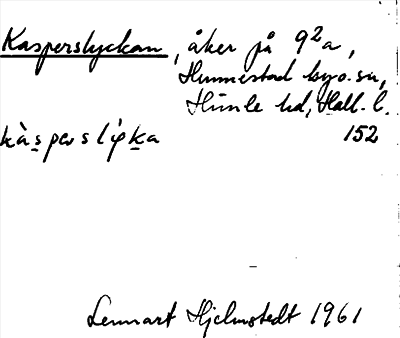 Kasperslyckan, åker på 9²a,
Hunnestad by o. sn,
Himle hd, Hall. l.
kàspərslỳka 152
Lennart Hjelmstedt 1961